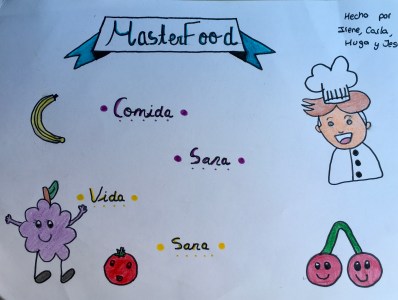 MasterFood
Hecho por
Irene, Carla,
Hugo y Jes
• Comida •
• Sana •
• Vida •
• Sana •